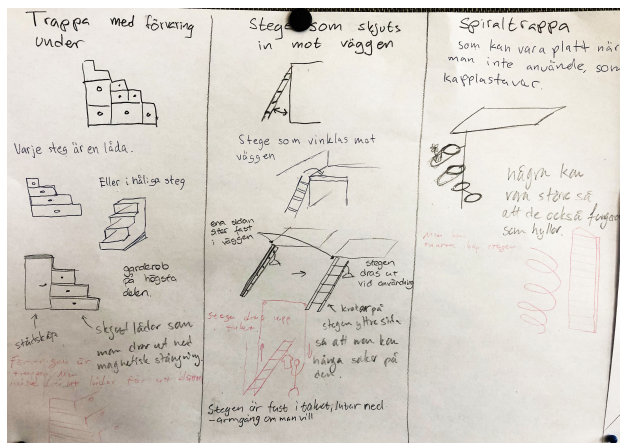 Trappa med förvaring
under
Varje steg är en låda.
Eller ihåliga steg
garderob
på högsta
delen.
städskåp
Skjut lådor som
man drar ut med
magnetisk stängning.
Stege som skjuts
in mot väggen
Stege som vinklas mot
väggen
ena sidan
sitter fast
i väggen
stegen
dras ut
vid användning
Stege dras upp
krokar på
stegen yttre sida
så att man kan
hänga saker på
den.
Stegen är fast i taket, lutar ned
-armgång om man vill
Spiraltrappa
som kan vara platt när
man inte använde, som
kapplastavar.
några kan
vara större så
att de också fungerar
som hyllor.